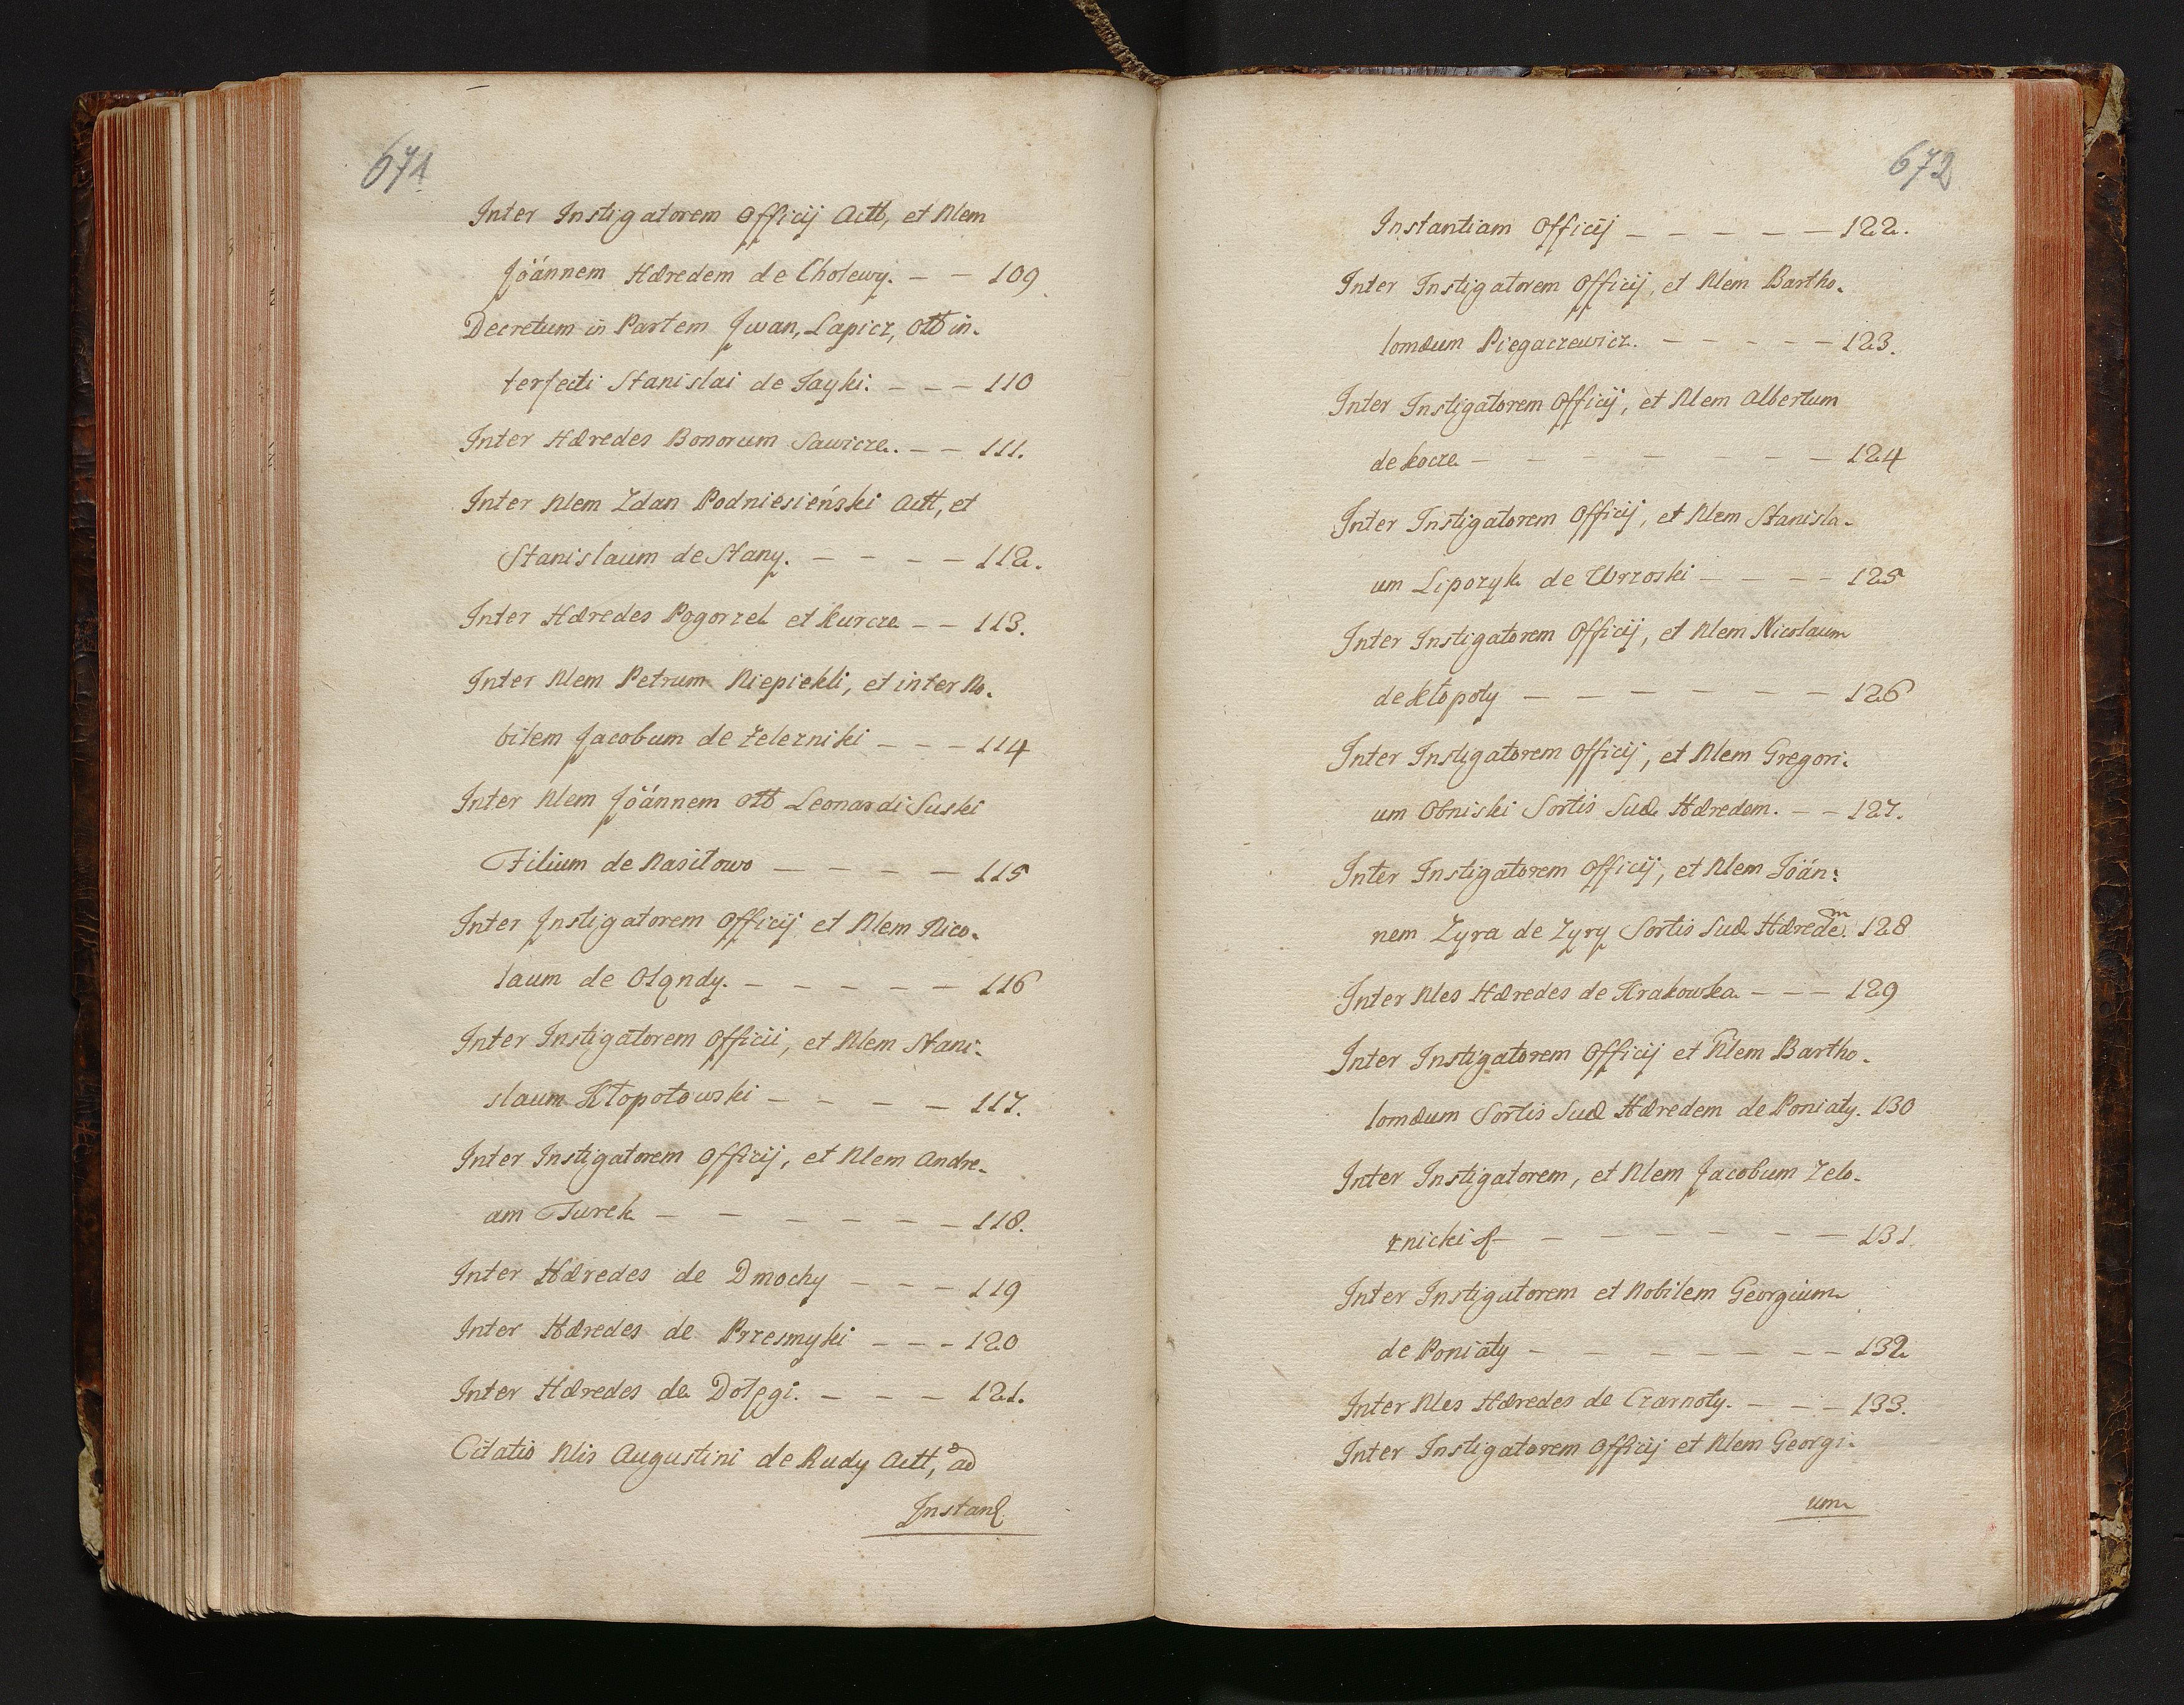 671
Inter Instigatorem Officij Actt, et Nlem
Joánnem Hæredem de Cholewy. – – 109
Decretum in Partem Jwan, Lapicz, ott in-
terfecti Stanislai de Tayki. – – – 110
Inter Hæredes Bonorum Sawicze. – – 111.
Inter Nlem Zdan Podniesieński Actt, et
Stanislaum de Stany. – – – – 112.
Inter Hæredes Pogorzel et Kurcze – – 113.
Inter Nlem Petrum Niepiekli, et inter No-
bilem Jacobum de Zelezniki – – – 114
Inter Nlem Joánnem ott Leonardi Suski
Filium de Nasiłowo – – – – 115
Inter Jnstigatorem Officij et Nlem Nico-
laum de Olędy. – – – – – 116
Inter Instigatorem Officii, et Nlem Stani-
slaum Kłopotowski – – – – 117.
Inter Instigatorem Officij, et Nlem Andre-
am Turek – – – – – – 118.
Inter Hæredes de Dmochy – – – 119
Inter Hæredes de Przesmyki – – – 120
Inter Hæredes de Dołęgi. – – – 121.
Citatio Nlis Augustini de Rudy Actt, ad
Instan
672
Instantiam Officij – – – – – 122.
Inter Instigatorem Officij, et Nlem Bartho-
lomæum Piegaczewicz. – – – – – 123.
Inter Instigatorem Officij, et Nlem Albertum
de Kocze – – – – – – – 124
Inter Instigatorem Officij, et Nlem Stanisla-
um Lipozyk de Wrzoski – – – – 125
Inter Instigatorem Officij, et Nlem Nicolaum
de Kłopoty – – – – – – 126
Inter Instigatorem Officij, et Nlem Gregori-
um Obniski Sortis Suæ Hæredem. – – 127.
Inter Instigatorem Officij, et Nlem Joán:
nem Zyra de Zyry Sortis Suæ Hæredem. 128
Inter Nles Hæredes de Krakowka – – – 129
Inter Instigatorem Officij et Nlem Bartho-
lomæum Sortis Suæ Hæredem de Poniaty. 130
Inter Instigatorem, et Nlem Jacobum Zele-
znicki – – – – – – – 131
Inter Instigatorem et Nobilem Georgium
de Poniaty – – – – – – – 132
Inter Nles Hæredes de Czarnoty. – – – 133.
Inter Instigatorem Officij et Nlem Georgi-
um